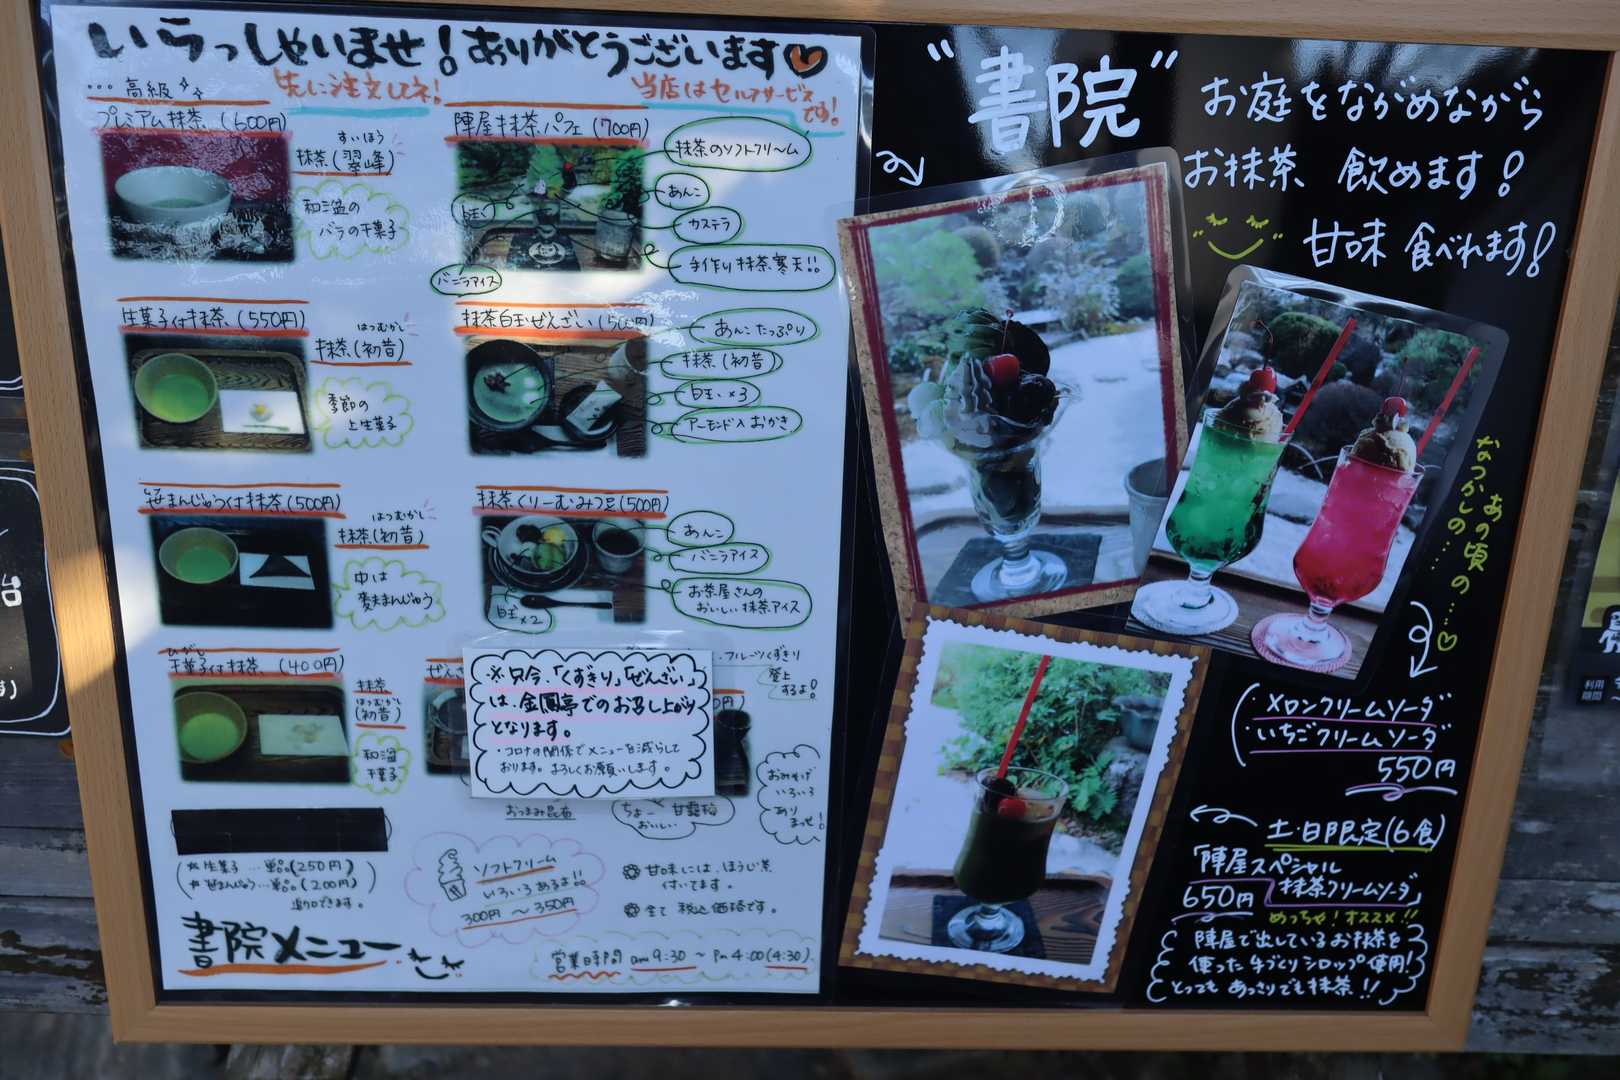 いらっしゃいませ！ありがとうございます
先に注文してネ！
当店はセルフサービス
です！
…高級
プレミアム抹茶（600円）
すいほう
抹茶（翠峰）
和三盆の
バラの干菓子
陣屋抹茶パフェ（700円）
抹茶のソフトクリーム
あんこ
白玉
カステラ
手作り抹茶寒天!!
バニラアイス
生菓子付抹茶（550円）
はつむかし
抹茶（初昔）
季節の
上生菓子
抹茶白玉ぜんざい（500円）
あんこたっぷり
抹茶（初昔）
白玉×3
アーモンド入おかき
笹まんじゅう付抹茶（500円）
はつむかし
抹茶（初昔）
中は
麦まんじゅう
抹茶くりーむみつ豆（500円）
あんこ
バニラアイス
お茶屋さんの
おいしい抹茶アイス
白玉×2
ひがし
干菓子付抹茶（400円）
抹茶
はつむかし
（初昔）
和三盆
干菓子
ぜんざ
フルーツくずきり
登場
するよ！
※只今、「くずきり」「ぜんざい」
は、金鳳亭でのお召し上がり
となります。
・コロナの関係でメニューを減らして
おります。よろしくお願いします。
円）
おつまみ昆布
ちょー
おいしい
甘露梅
おみやげ
いろいろ
あり
ませ！
（※生菓子…単品（250円）
（※笹まんじゅう…単品（200円）
追加できます。
ソフトクリーム
いろいろあるよ!!
300円〜350円
甘味には、ほうじ茶
付いてます。
全て税込価格です。
書院メニュー
営業時間 am9:30〜Pm4:00（4:30）
“書院”
お庭をながめながら
お抹茶 飲めます！
甘味 食べれます！
あの頃の…
なつかしの…
・メロンクリームソーダ
・いちごクリームソーダ
550円
土・日限定（6食）
「陣屋スペシャル
抹茶クリームソーダ」
650円
めっちゃ！オススメ!!
陣屋で出しているお抹茶を
使った手づくりシロップ使用！
とってもあっさりでも抹茶!!
台
利用
期間